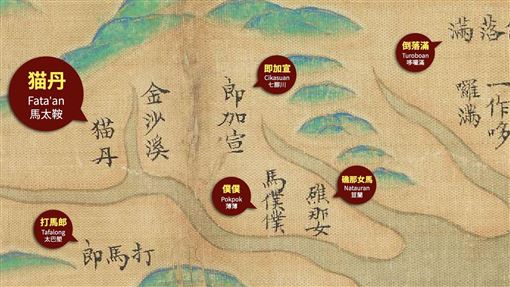 猫丹
Fata'an
馬太鞍
即加宣
Cikasuan
七腳川
倒落滿
Turoboan
哆囉滿
僕僕
Pokpok
薄薄
礁那女馬
Natauran
荳蘭
打馬郎
Tafalong
太巴塱
落滿
一作哆
囉滿
即加宣
金沙溪
猫丹
礁那女
馬僕僕
打馬郎